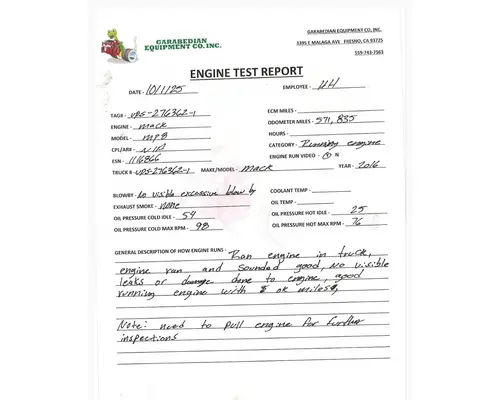 GARABEDIAN
EQUIPMENT CO, INC.
GARABEDIAN EQUIPMENT CO., INC.
3395 E MALAGA AVE FRESNO, CA 93725
559-743-7563
ENGINE TEST REPORT
DATE - 10/1/25 EMPLOYEE - HH
TAG# - UPS-276362-1 ECM MILES -
ENGINE - Mack ODOMETER MILES - 571,835
MODEL - MP8 HOURS -
CPL/AR# - N/A CATEGORY - Running engine
ESN - 1116866 ENGINE RUN VIDEO - Y N
TRUCK # - UPS-276362-1 MAKE/MODEL - Mack YEAR - 2016
BLOWBY - no visible excessive blow by COOLANT TEMP -
EXHAUST SMOKE - none OIL TEMP -
OIL PRESSURE COLD IDLE - 54 OIL PRESSURE HOT IDLE - 25
OIL PRESSURE COLD MAX RPM - 98 OIL PRESSURE HOT MAX RPM - 76
GENERAL DESCRIPTION OF HOW ENGINE RUNS - Ran engine in truck,
engine ran and sounded good, no visible
leaks or damage done to engine, good
running engine with ok miles,
Note: need to pull engine for further
inspections